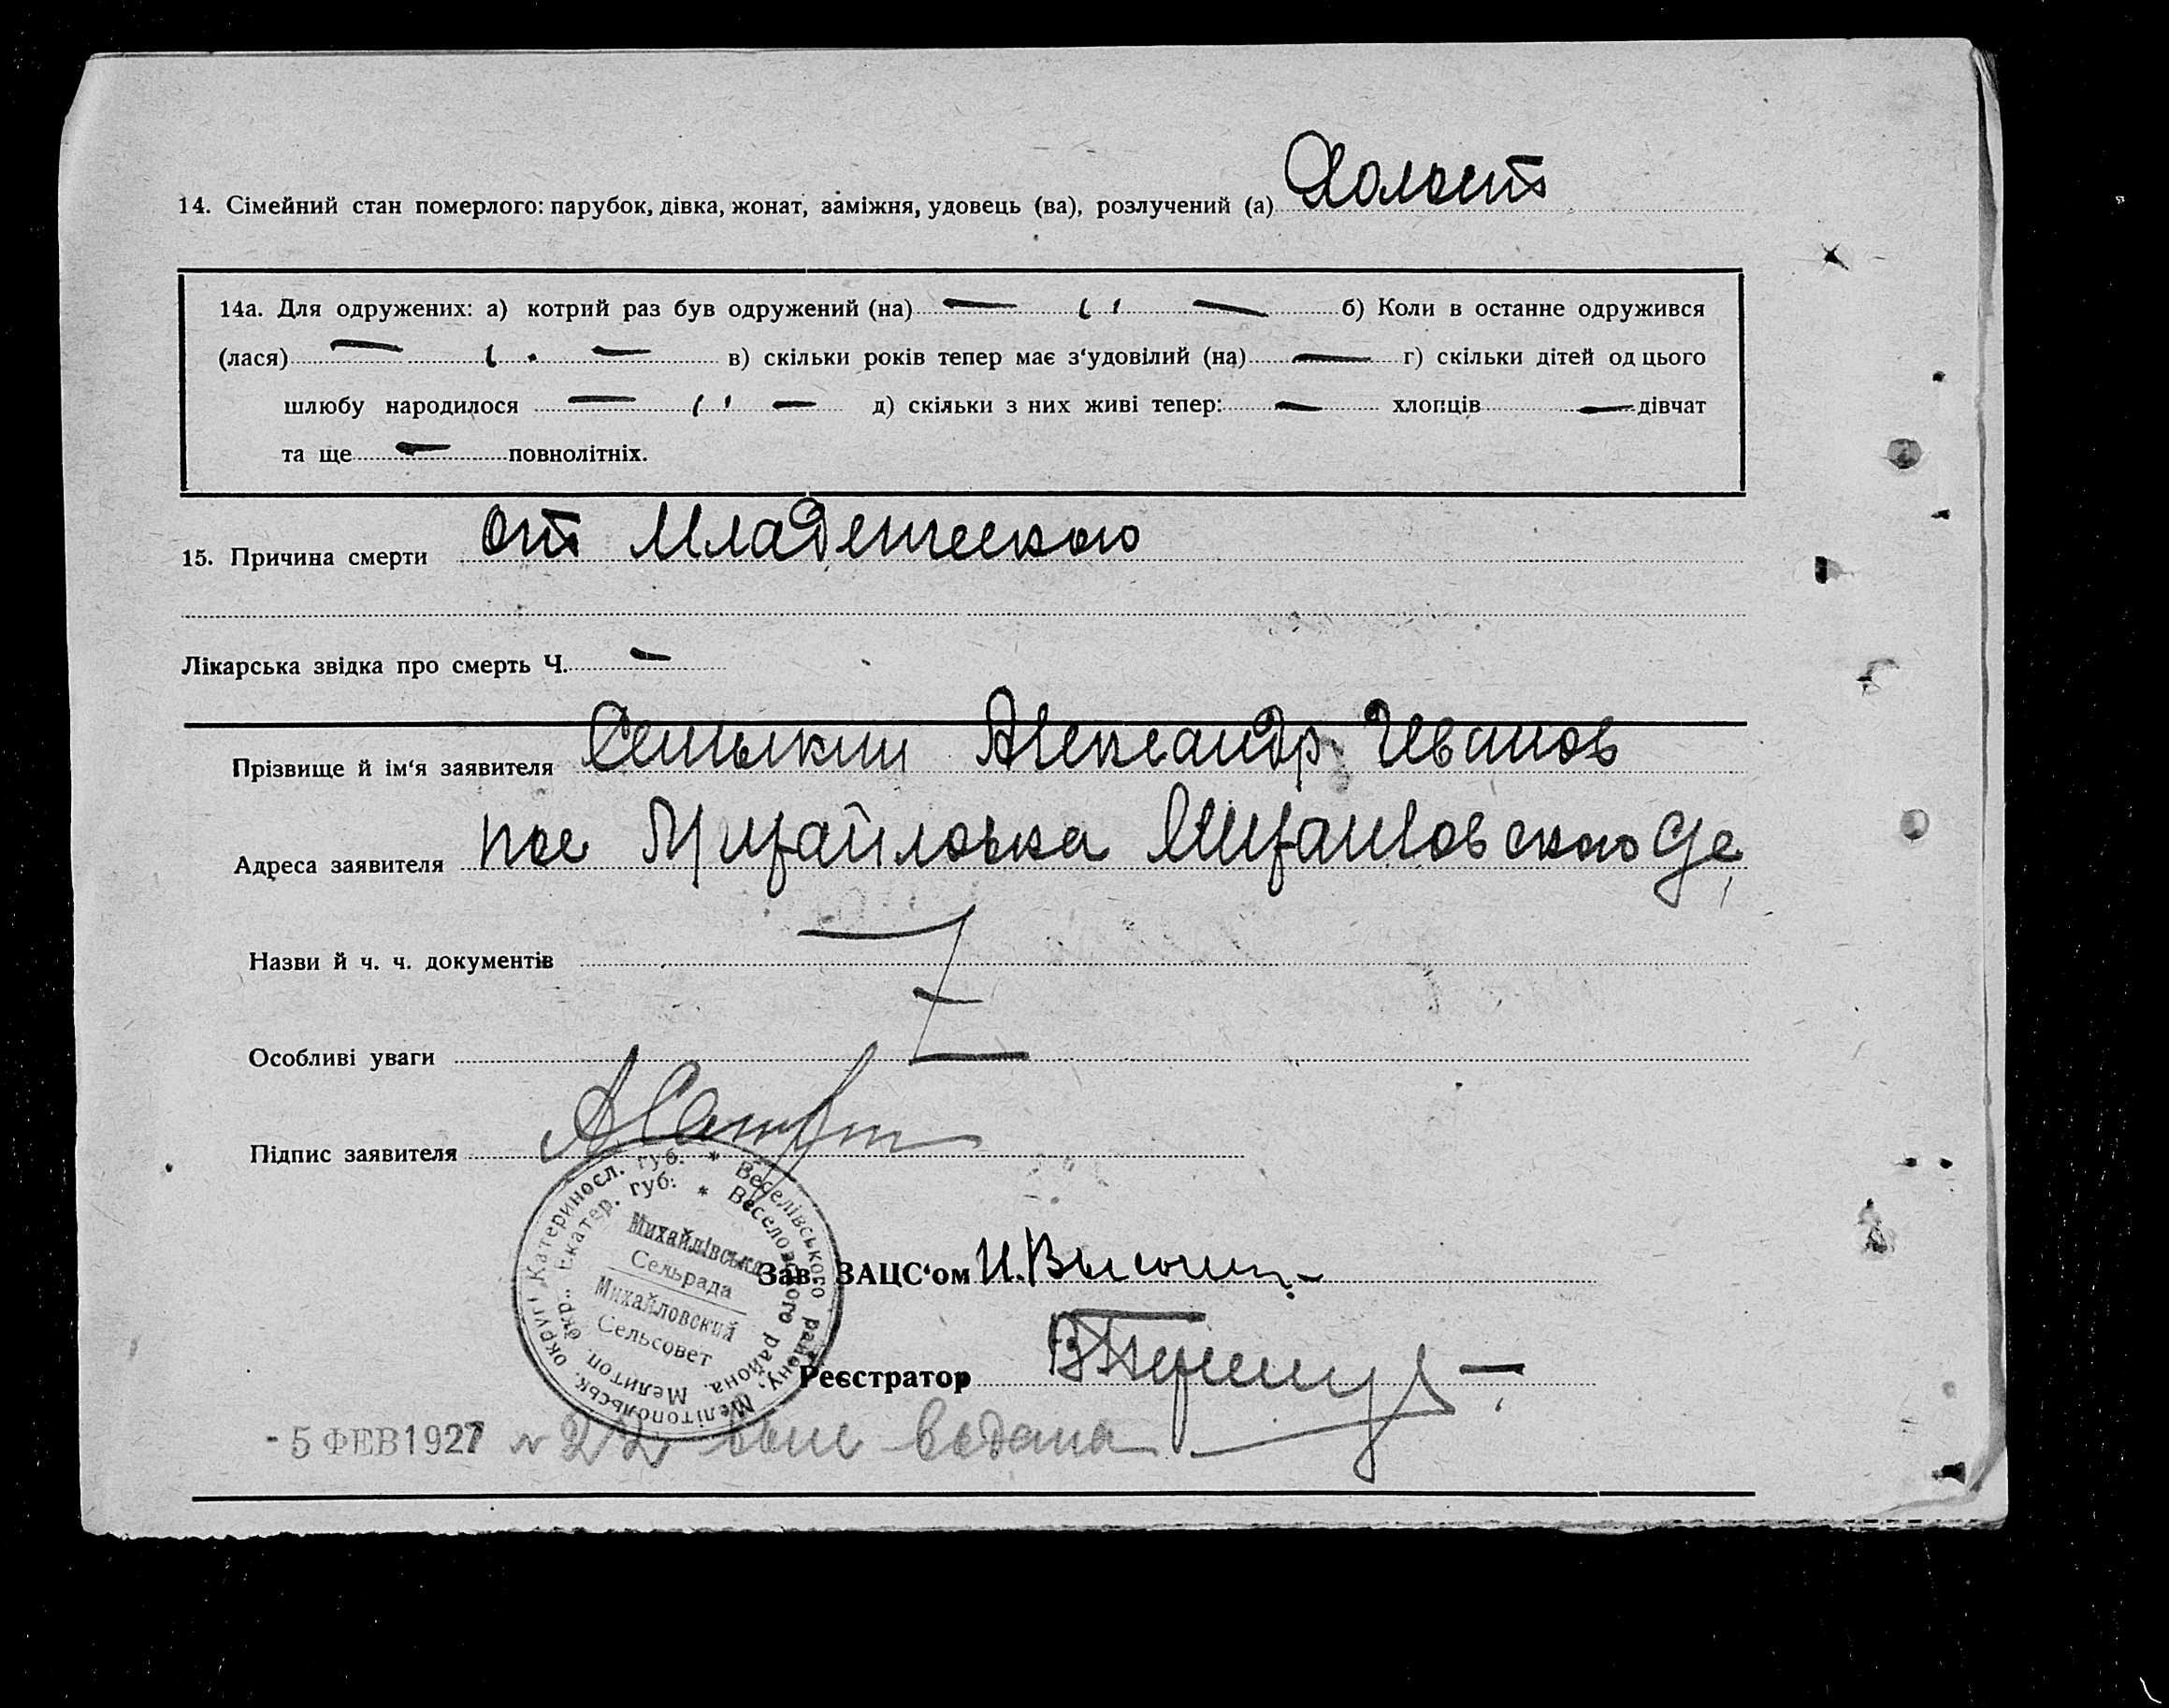 14. Сімейний стан померлого: парубок, дівка, жонат, заміжня, удовець (ва), розлучений (а) Холост
14а. Для одружених: а) котрий раз був одружений (на) — — б) Коли в останне одружився
(лася) — — в) скільки років тепер має з‘удовілий (на) — г) скільки дітей од цього
шлюбу народилося — — д) скільки з них живі тепер: — хлопців — дівчат
та ще — повнолітніх.
15. Причина смерти от Младенческого
Лікарська звідка про смерть Ч. —
Прізвище й ім‘я заявителя Александр Иванов
Адреса заявителя пос Михайловка
Назви й ч. ч. документів
Особливі уваги
Підпис заявителя
Катериносл. губ. * Веселівського району, Мелітопольськ. округ
Екатер. губ. * Веселовского района, Мелитоп. окр.
Михайлівська
Сельрада
Михайловский
Сельсовет
Зав. ЗАЦС‘ом
Реєстратор
- 5 ФЕВ 1927